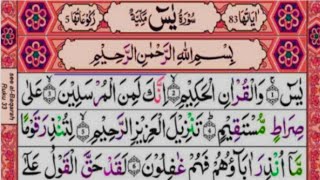 اٰیَاتُهَا 83 سُوْرَةُ یٰسٓ مَکِّیَّةٌ رُکُوْعَاتُهَا 5
بِسْمِ اللّٰهِ الرَّحْمٰنِ الرَّحِیْمِ
یٰسٓ وَالْقُرْاٰنِ الْحَکِیْمِ اِنَّكَ لَمِنَ الْمُرْسَلِیْنَ عَلٰی
صِرَاطٍ مُّسْتَقِیْمٍ تَنْزِیْلَ الْعَزِیْزِ الرَّحِیْمِ لِتُنْذِرَ قَوْمًا
مَّاۤ اُنْذِرَ اٰبَآؤُهُمْ فَهُمْ غٰفِلُوْنَ لَقَدْ حَقَّ الْقَوْلُ عَلٰۤی